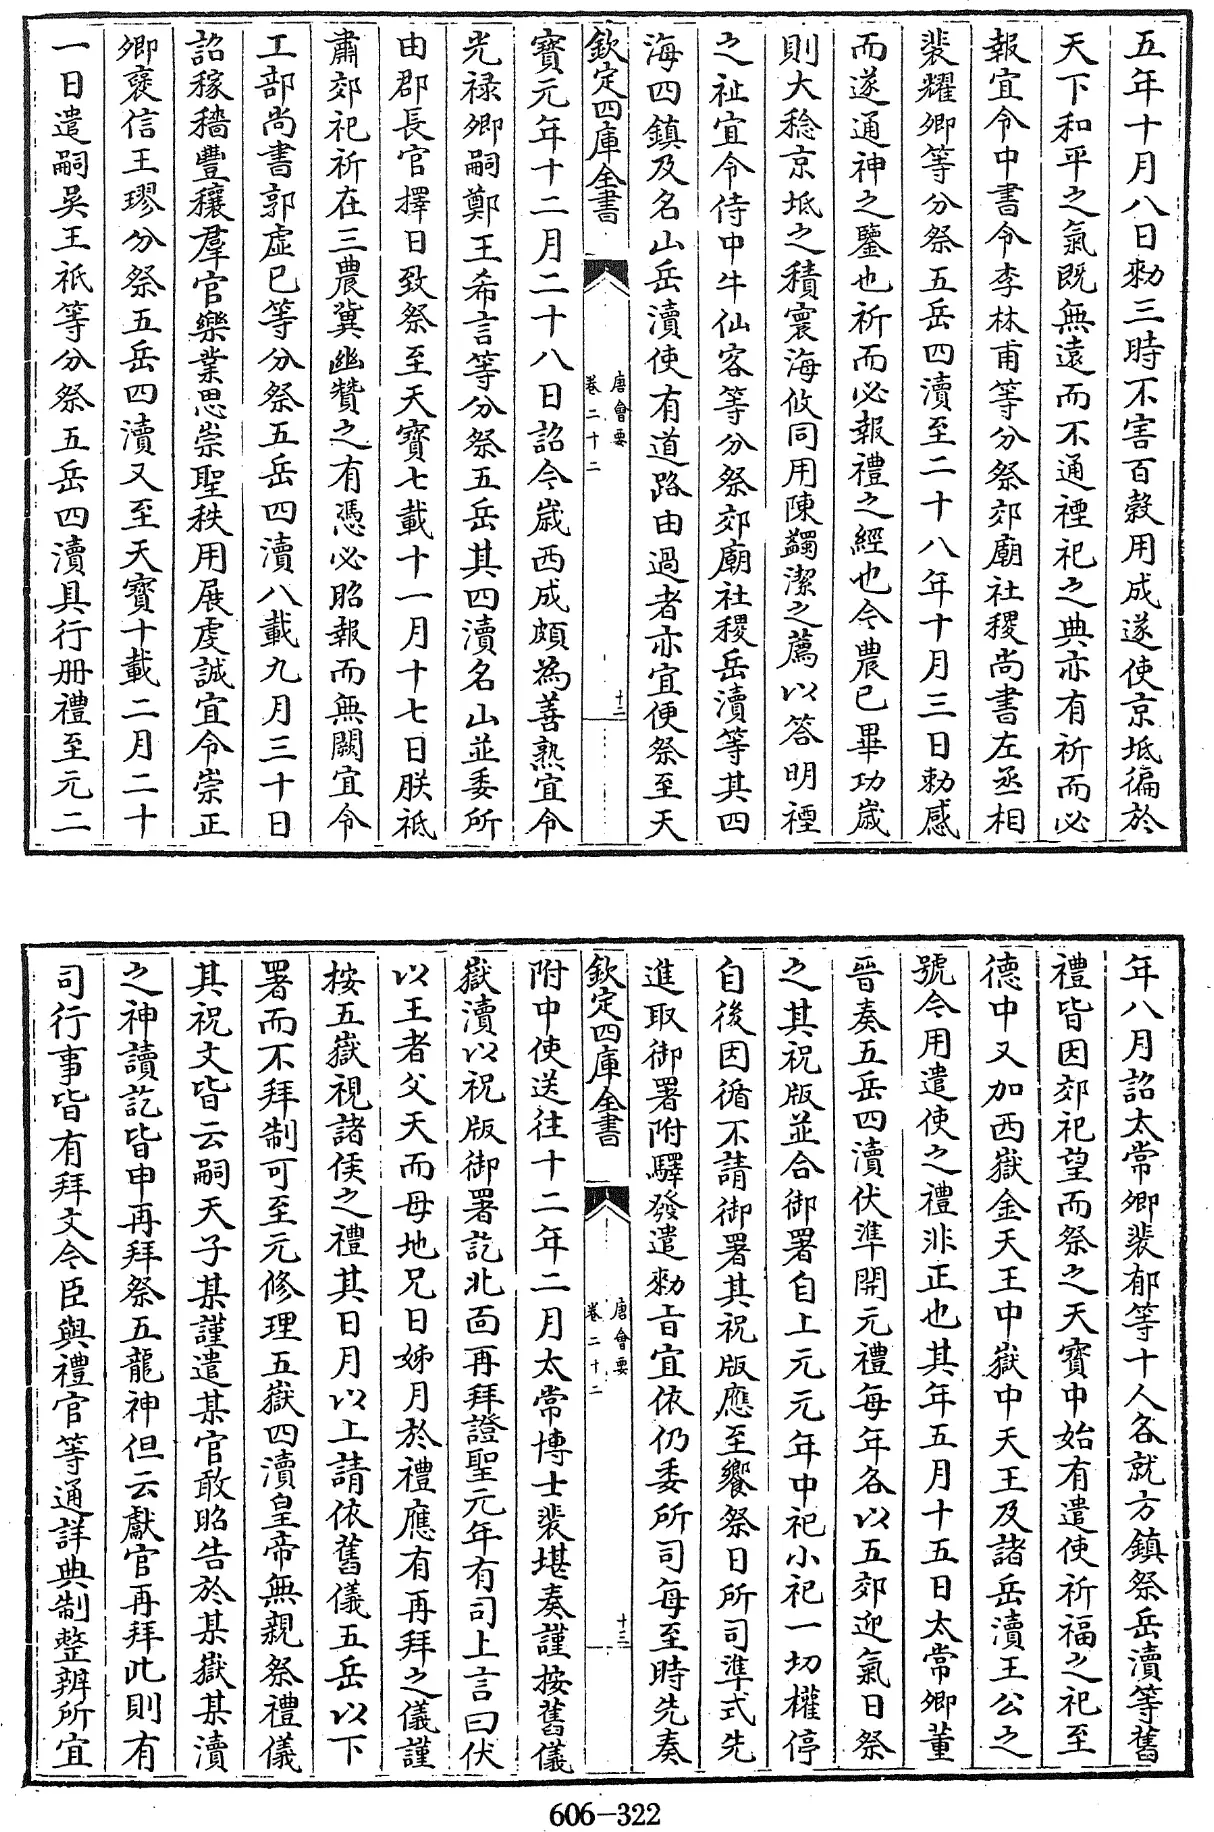 五年十月八日勑三時不害百穀用成遂使京坻徧於
天下和平之氣既無遠而不通禋祀之典亦有祈而必
報宜令中書令李林甫等分祭郊廟社稷尚書左丞相
裴耀卿等分祭五岳四瀆至二十八年十月三日勑感
而遂通神之鑒也祈而必報禮之經也今農已畢功歲
則大稔京坻之積寰海攸同用陳蠲潔之薦以答明禋
之祉宜令侍中牛仙客等分祭郊廟社稷岳瀆等其四
海四鎮及名山岳瀆使有道路由過者亦宜便祭至天
欽定四庫全書
唐會要
卷二十二
十二
寳元年十二月二十八日詔今歲西成頗為善熟宜令
光禄卿嗣鄭王希言等分祭五岳其四瀆名山並委所
由郡長官擇日致祭至天寳七載十一月十七日朕祗
肅郊祀祈在三農冀幽贊之有憑必昭報而無闕宜令
工部尚書郭虚已等分祭五岳四瀆八載九月三十日
詔稼穡豐穰羣官樂業思崇聖秩用展虔誠宜令崇正
卿襃信王璆分祭五岳四瀆又至天寳十載二月二十
一日遣嗣吳王祗等分祭五岳四瀆具行册禮至元二
年八月詔太常卿裴郁等十人各就方鎮祭岳瀆等舊
禮皆因郊祀望而祭之天寳中始有遣使祈福之祀至
德中又加西嶽金天王中嶽中天王及諸岳瀆王公之
號令用遣使之禮非正也其年五月十五日太常卿董
晉奏五岳四瀆伏準開元禮每年各以五郊迎氣日祭
之其祝版並合御署自上元元年中祀小祀一切權停
自後因循不請御署其祝版應至饗祭日所司準式先
進取御署附驛發遣勑旨宜依仍委所司每至時先奏
欽定四庫全書
唐會要
卷二十二
十三
附中使送往十二年二月太常博士裴堪奏謹按舊儀
嶽瀆以祝版御署訖北面再拜證聖元年有司上言曰伏
以王者父天而母地兄日姊月於禮應有再拜之儀謹
按五嶽視諸侯之禮其日月以上請依舊儀五岳以下
署而不拜制可至元修理五嶽四瀆皇帝無親祭禮儀
其祝文皆云嗣天子某謹遣某官敢昭告於某嶽某瀆
之神讀訖皆申再拜祭五龍神但云獻官再拜此則有
司行事皆有拜文今臣與禮官等通詳典制整辨所宜
606-322